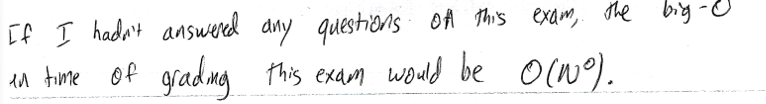 If I hadn't answered any questions on this exam, the big-O
in time of grading this exam would be O(N⁰).